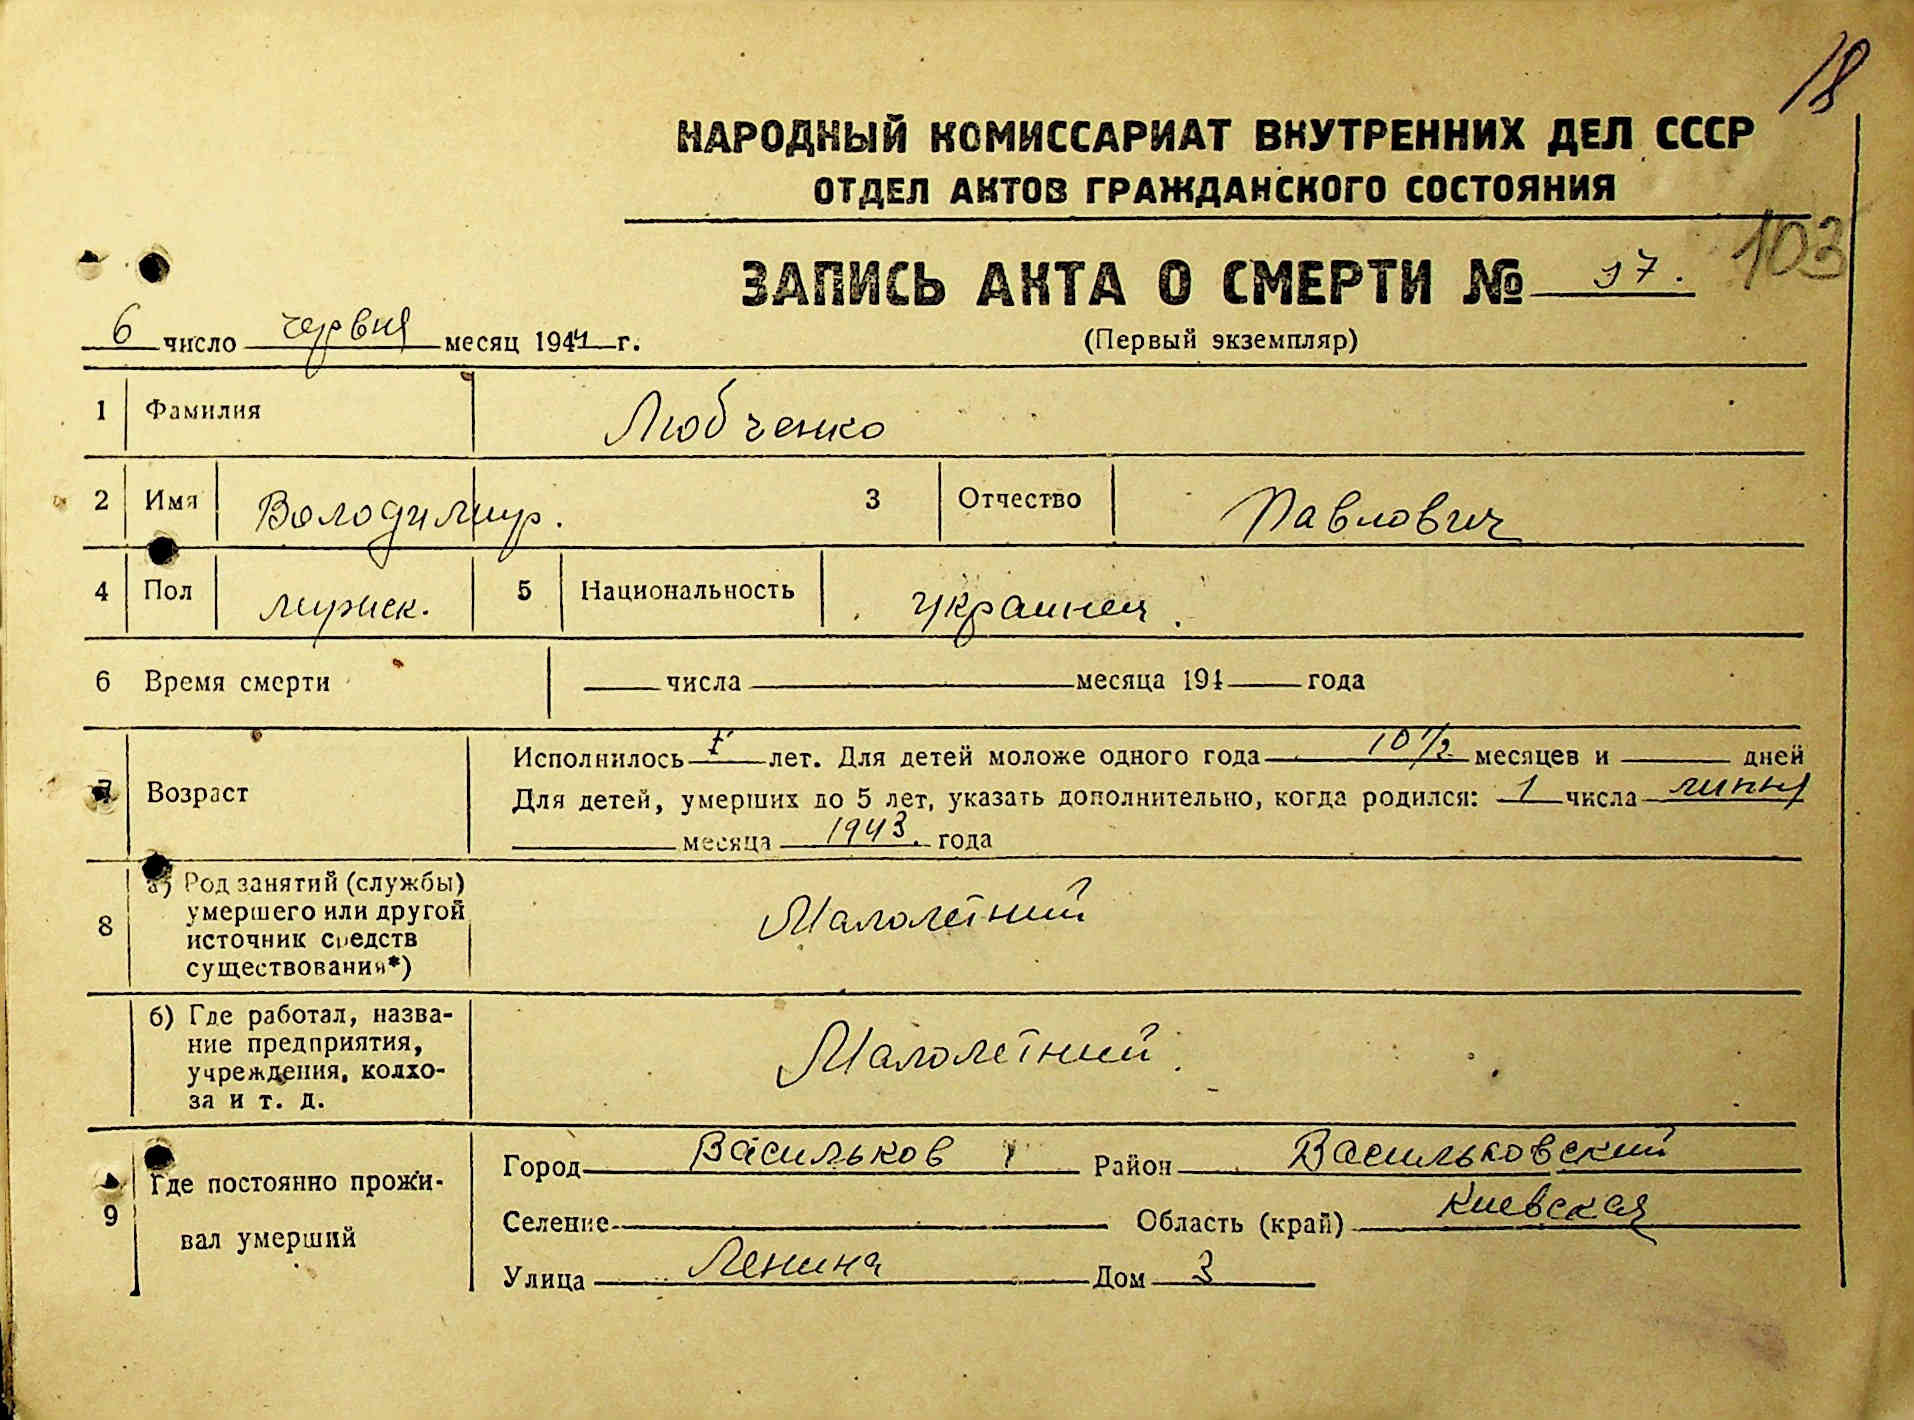 18
НАРОДНЫЙ КОМИССАРИАТ ВНУТРЕННИХ ДЕЛ СССР
ОТДЕЛ АКТОВ ГРАЖДАНСКОГО СОСТОЯНИЯ
103
ЗАПИСЬ АКТА О СМЕРТИ № 97.
6 число червня месяц 1944 г.
(Первый экземпляр)
1 Фамилия Любченко
2 Имя Володимир. 3 Отчество Павлович
4 Пол мужск. 5 Национальность украинец.
6 Время смерти числа месяца 194 года
7 Возраст
Исполнилось лет. Для детей моложе одного года 10 1/2 месяцев и дней
Для детей, умерших до 5 лет, указать дополнительно, когда родился: 1 числа липня
месяца 1943. года
8 а) Род занятий (службы)
умершего или другой
источник средств
существования*)
Малолетний
б) Где работал, назва-
ние предприятия,
учреждения, колхо-
за и т. д.
Малолетний.
9 Где постоянно прожи-
вал умерший
Город Васильков Район Васильковский
Селение Область (край) Киевская
Улица Ленина Дом 3